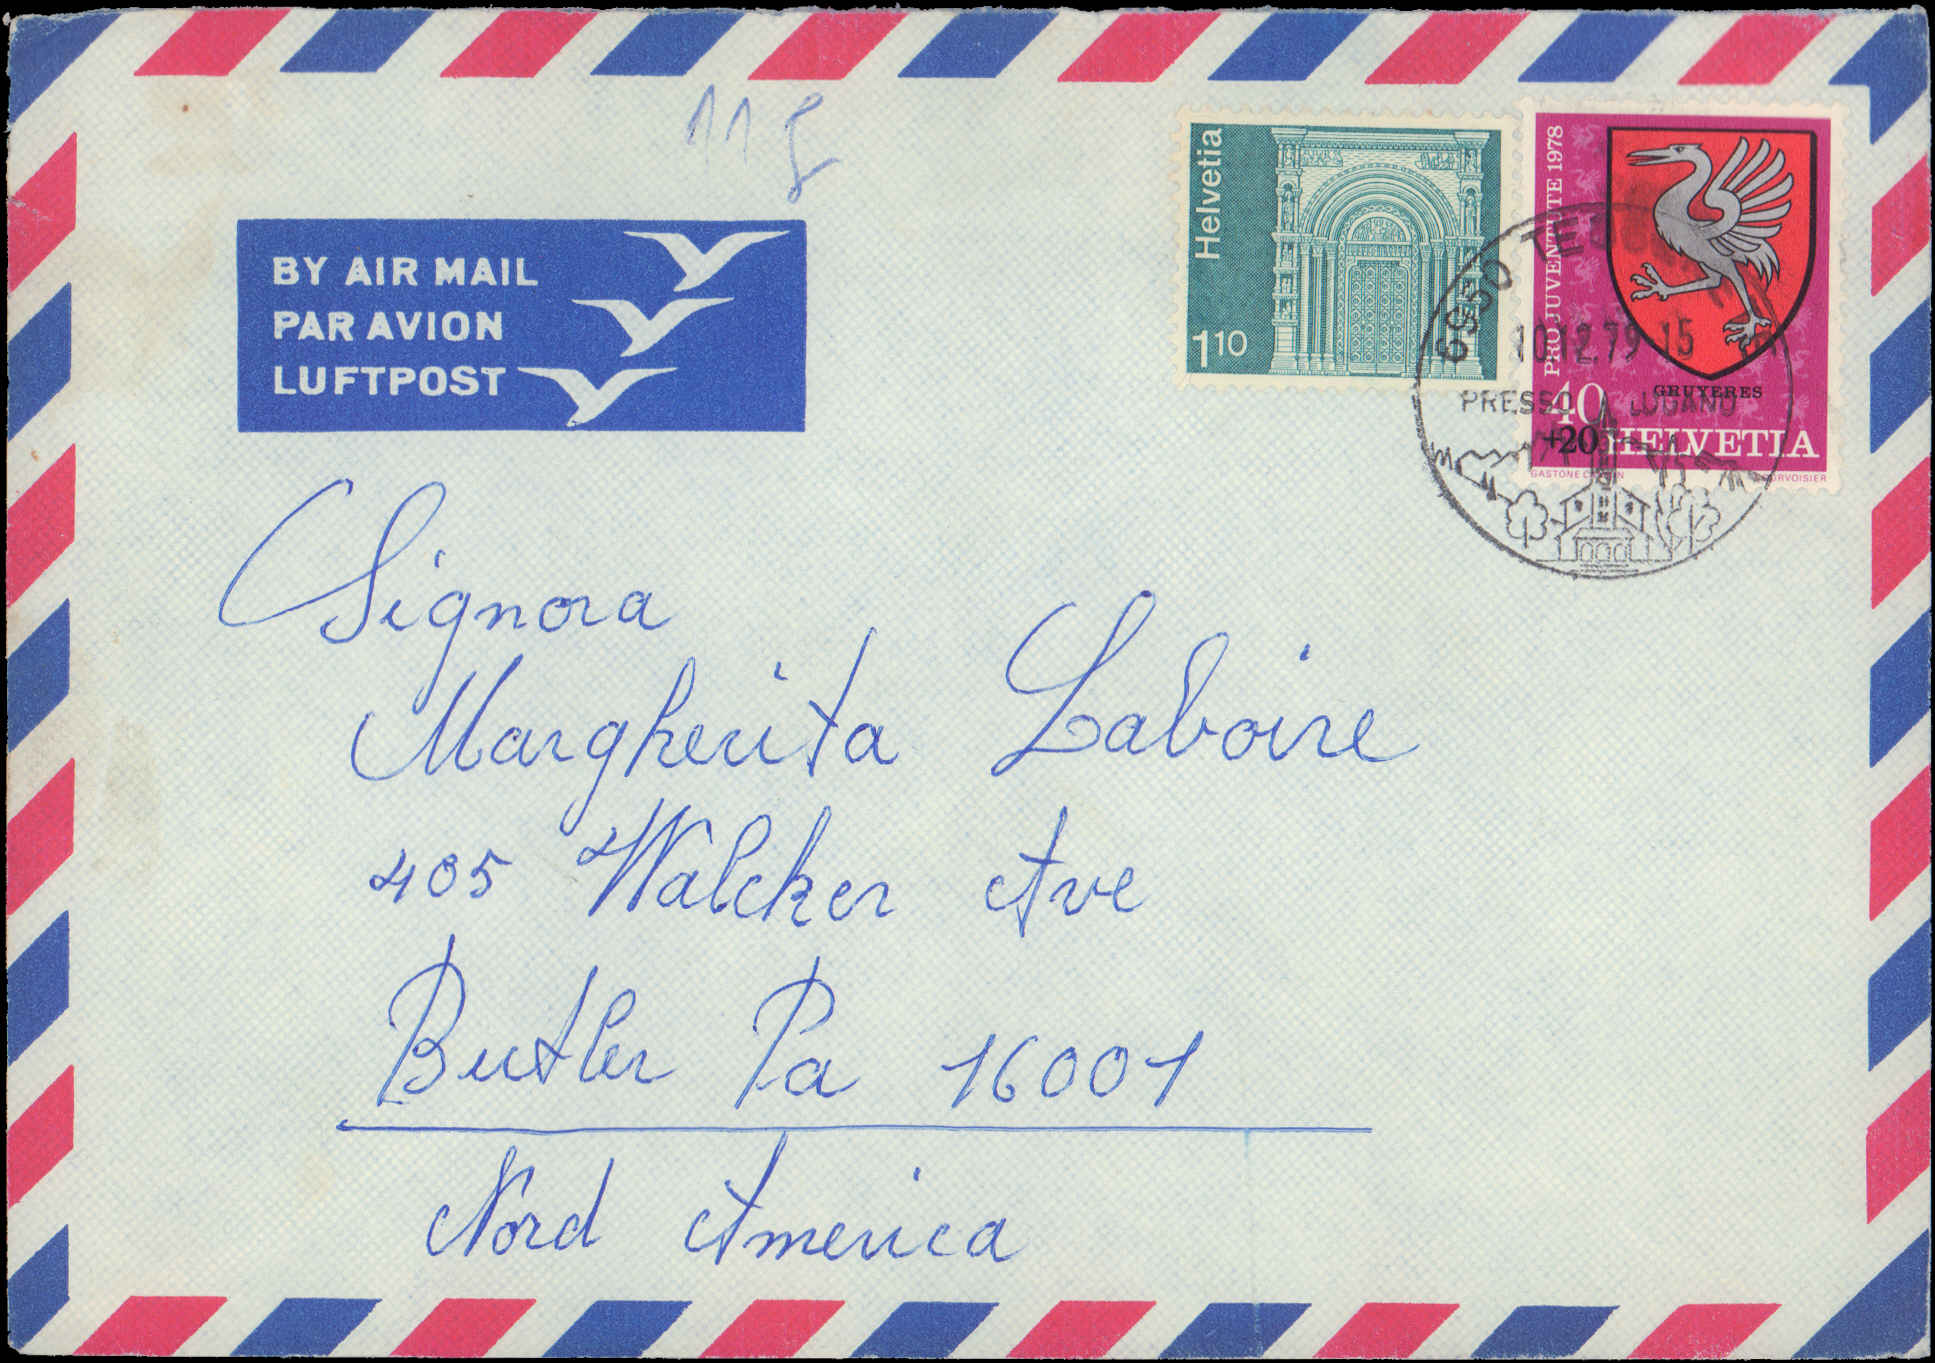 11 g
BY AIR MAIL
PAR AVION
LUFTPOST
Helvetia
1 10
PRO JUVENTUTE 1978
GRUYERES
40
+20 HELVETIA
GASTONE
COURVOISIER
6950 TESSERETE
10.12.79 15
PRESSO LUGANO
Signora
Margherita Laboire
405 Walcker Ave
Butler Pa 16001
Nord America